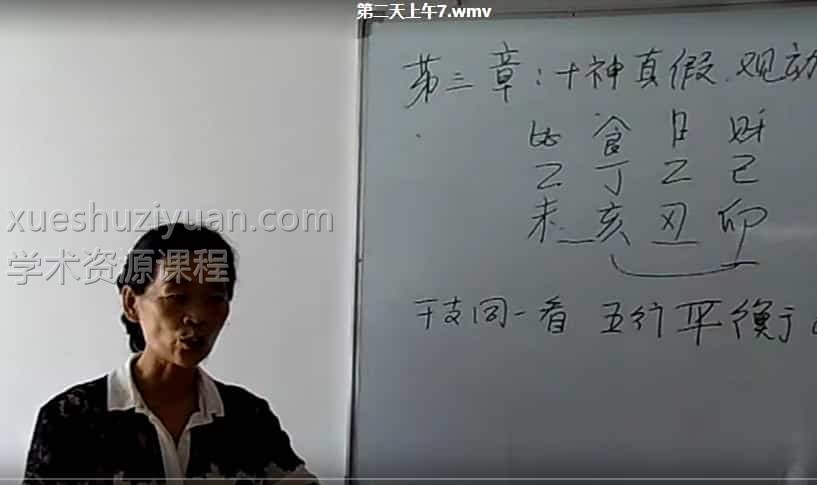 第二天上午7.wmv
第三章:十神真假.观动
比 食 日 财
乙 丁 乙 己
未 亥 丑 卯
干支同一看 五行平衡于
xueshuziyuan.com
学术资源课程